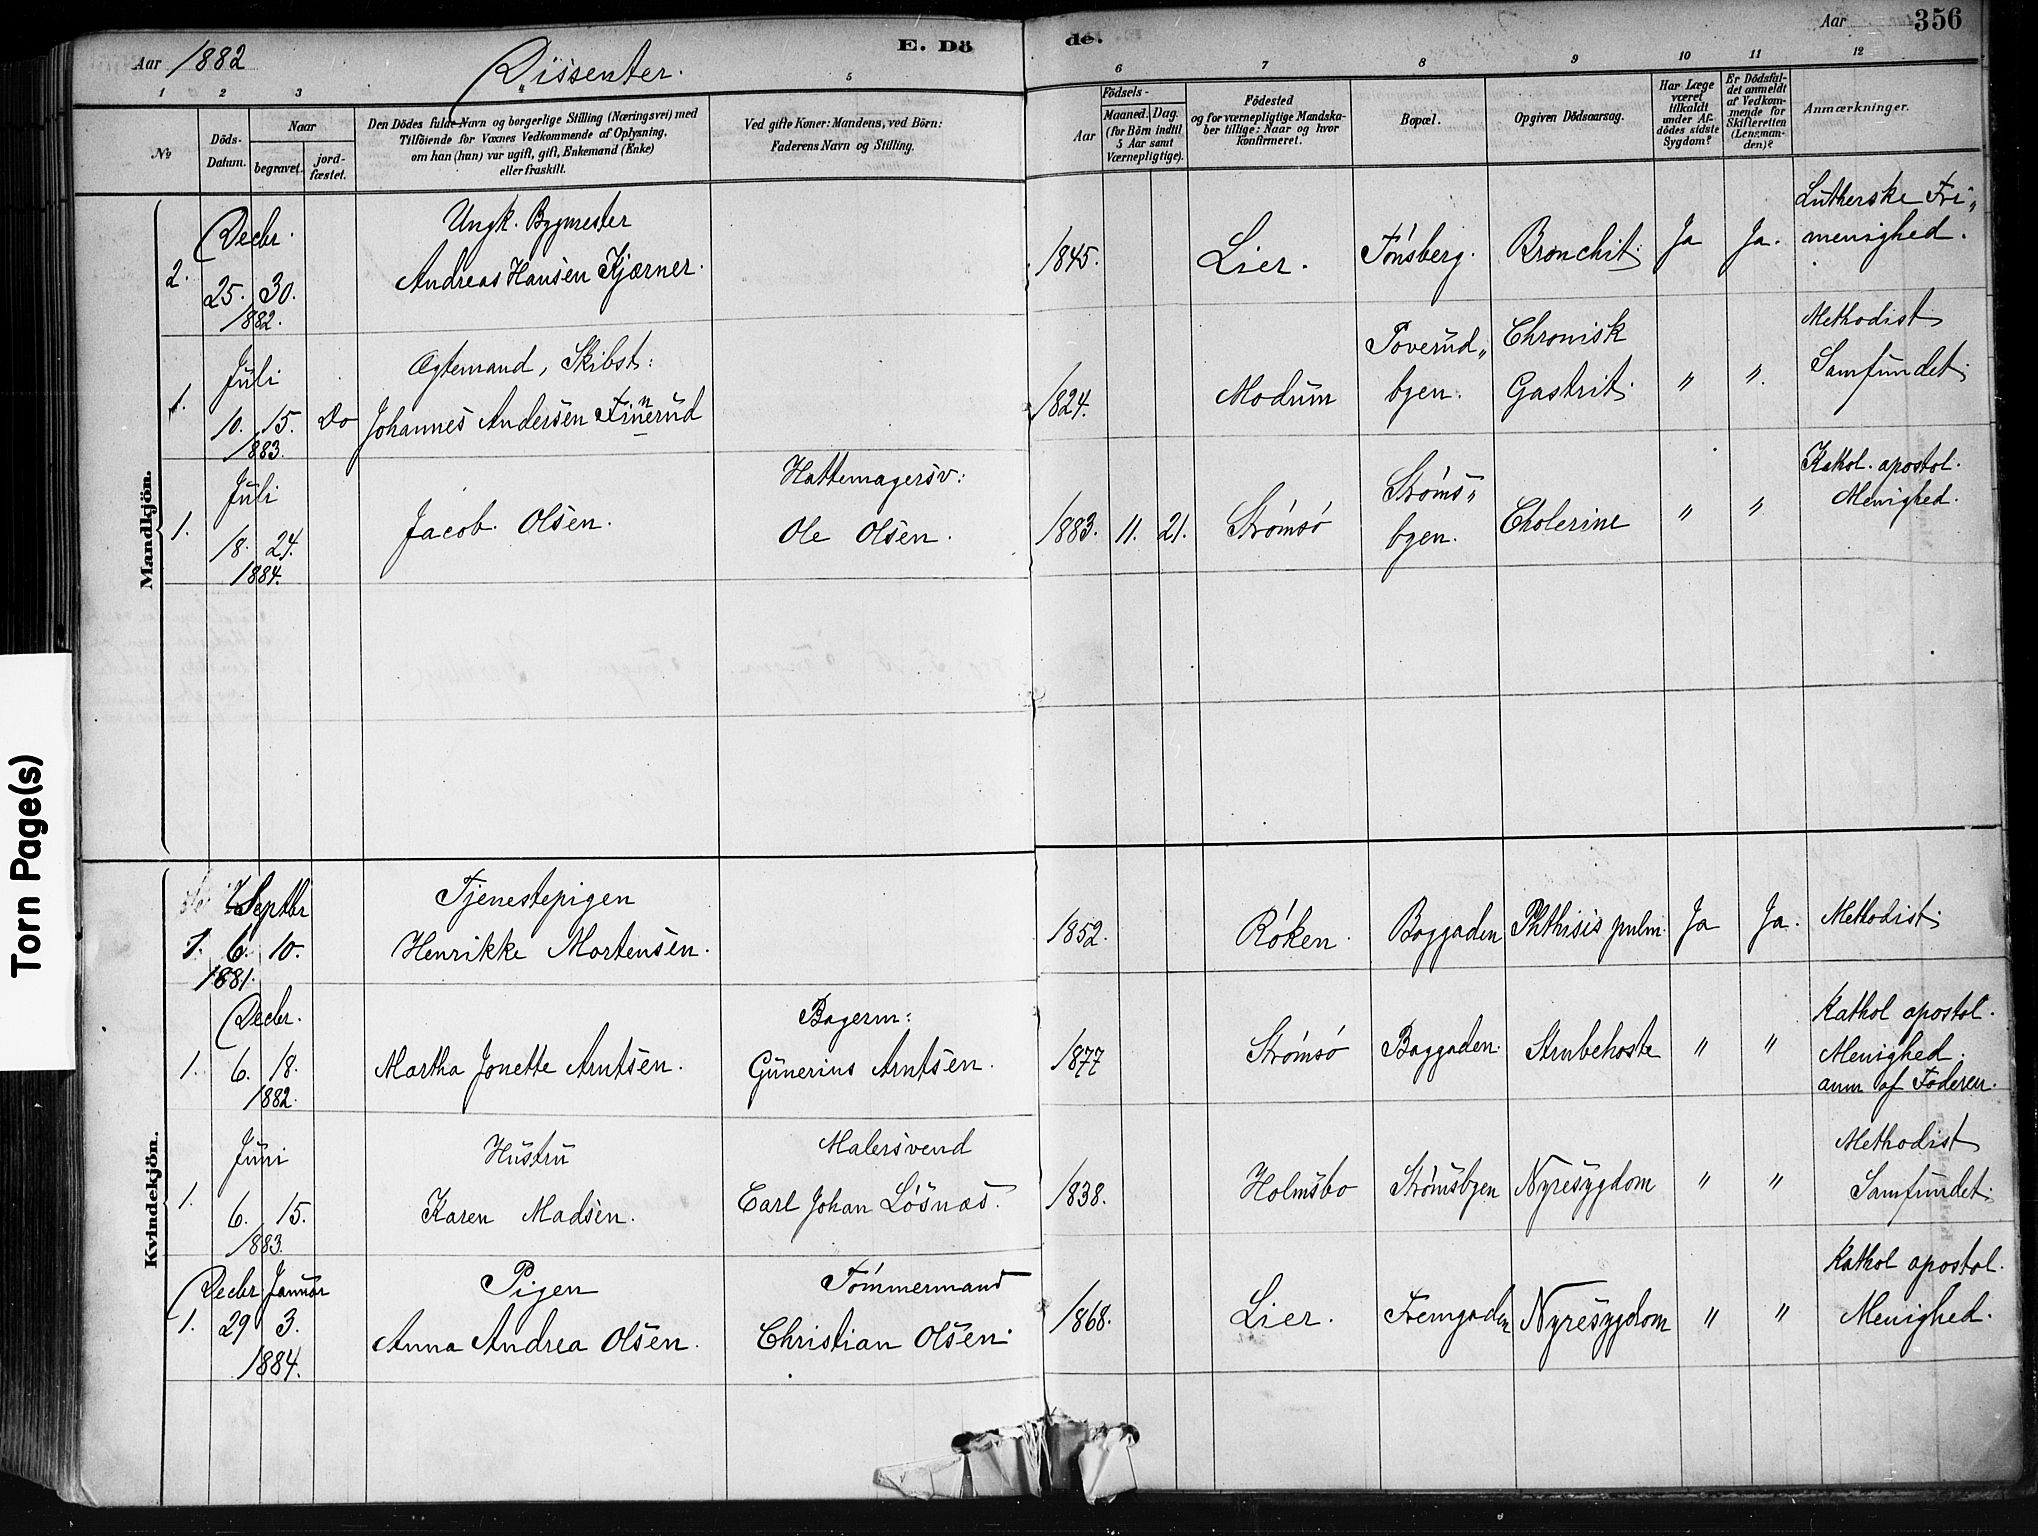 Aar 1882
Dissenter.
E. Dö
de.
Aar
356
1 2 3 4 5 6 7 8 9 10 11 12
No
Döds-
Datum.
Naar
begravet.
jord-
fæstet.
Den Dödes fulde Navn og borgerlige Stilling (Næringsvei) med
Tilföiende for Voxnes Vedkommende af Oplysning,
om han (hun) var ugift, gift, Enkemand (Enke)
eller fraskilt.
Ved gifte Koner: Mandens, ved Börn:
Faderens Navn og Stilling.
Födsels-
Aar
Maaned. Dag.
(for Börn indtil
5 Aar samt
Værnepligtige).
Födested
og for værnepligtige Mandska-
ber tillige: Naar og hvor
konfirmeret.
Bopæl.
Opgiven Dödsaarsag.
Har Læge
været
tilkaldt
under Af-
dödes sidste
Sygdom?
Er Dödsfal-
det anmeldt
af Vedkom-
mende for
Skifteretten
(Lensman-
den)?
Anmærkninger.
Mandkjön.
2. Decbr. 25. 30. 1882.
Ungk. Bygmester
Andreas Hansen Kjærner.
1845. Lier. Tønsberg. Bronchit. Ja Ja.
Lutherske Fri-
menighed.
1. Juli 10. 15. 1883. Do
Ægtemand, Skibst:
Johannes Andersen Finnerud
1824. Modum
Toverud-
bgen.
Chronisk
Gastrit.
" "
Methodist
Samfundet.
1. Juli 18. 24. 1884.
Jacob Olsen.
Hattemagersv:
Ole Olsen.
1883. 11. 21. Strømsø
Strøms-
bgen.
Cholerine " "
Kathol. apostol.
Menighed.
Kvindekjön.
Septbr
1. 6. 10. 1881.
Tjenestepigen
Henrikke Mortensen.
1852. Røken. Baggaden Phthisis pulm. Ja Ja. Methodist.
1. Decbr. 6. 18. 1882.
Martha Jonette Arntsen.
Bagerm:
Gunerius Arntsen.
1877 Strømsø Baggaden. Strubehoste " "
Kathol apostol.
Menighed.
anm af Faderen.
1. Juni 6. 15. 1883.
Hustru
Karen Madsen.
Malersvend
Carl Johan Løsnæs.
1838. Holmsbo Strømsbgen Nyresygdom " "
Methodist
Samfundet.
1. Decbr Januar 29 3. 1884.
Pigen
Anna Andrea Olsen.
Tømmermand
Christian Olsen.
1868. Lier. Fremgaden Nyresygdom " "
Kathol apostol.
Menighed.
Torn Page(s)